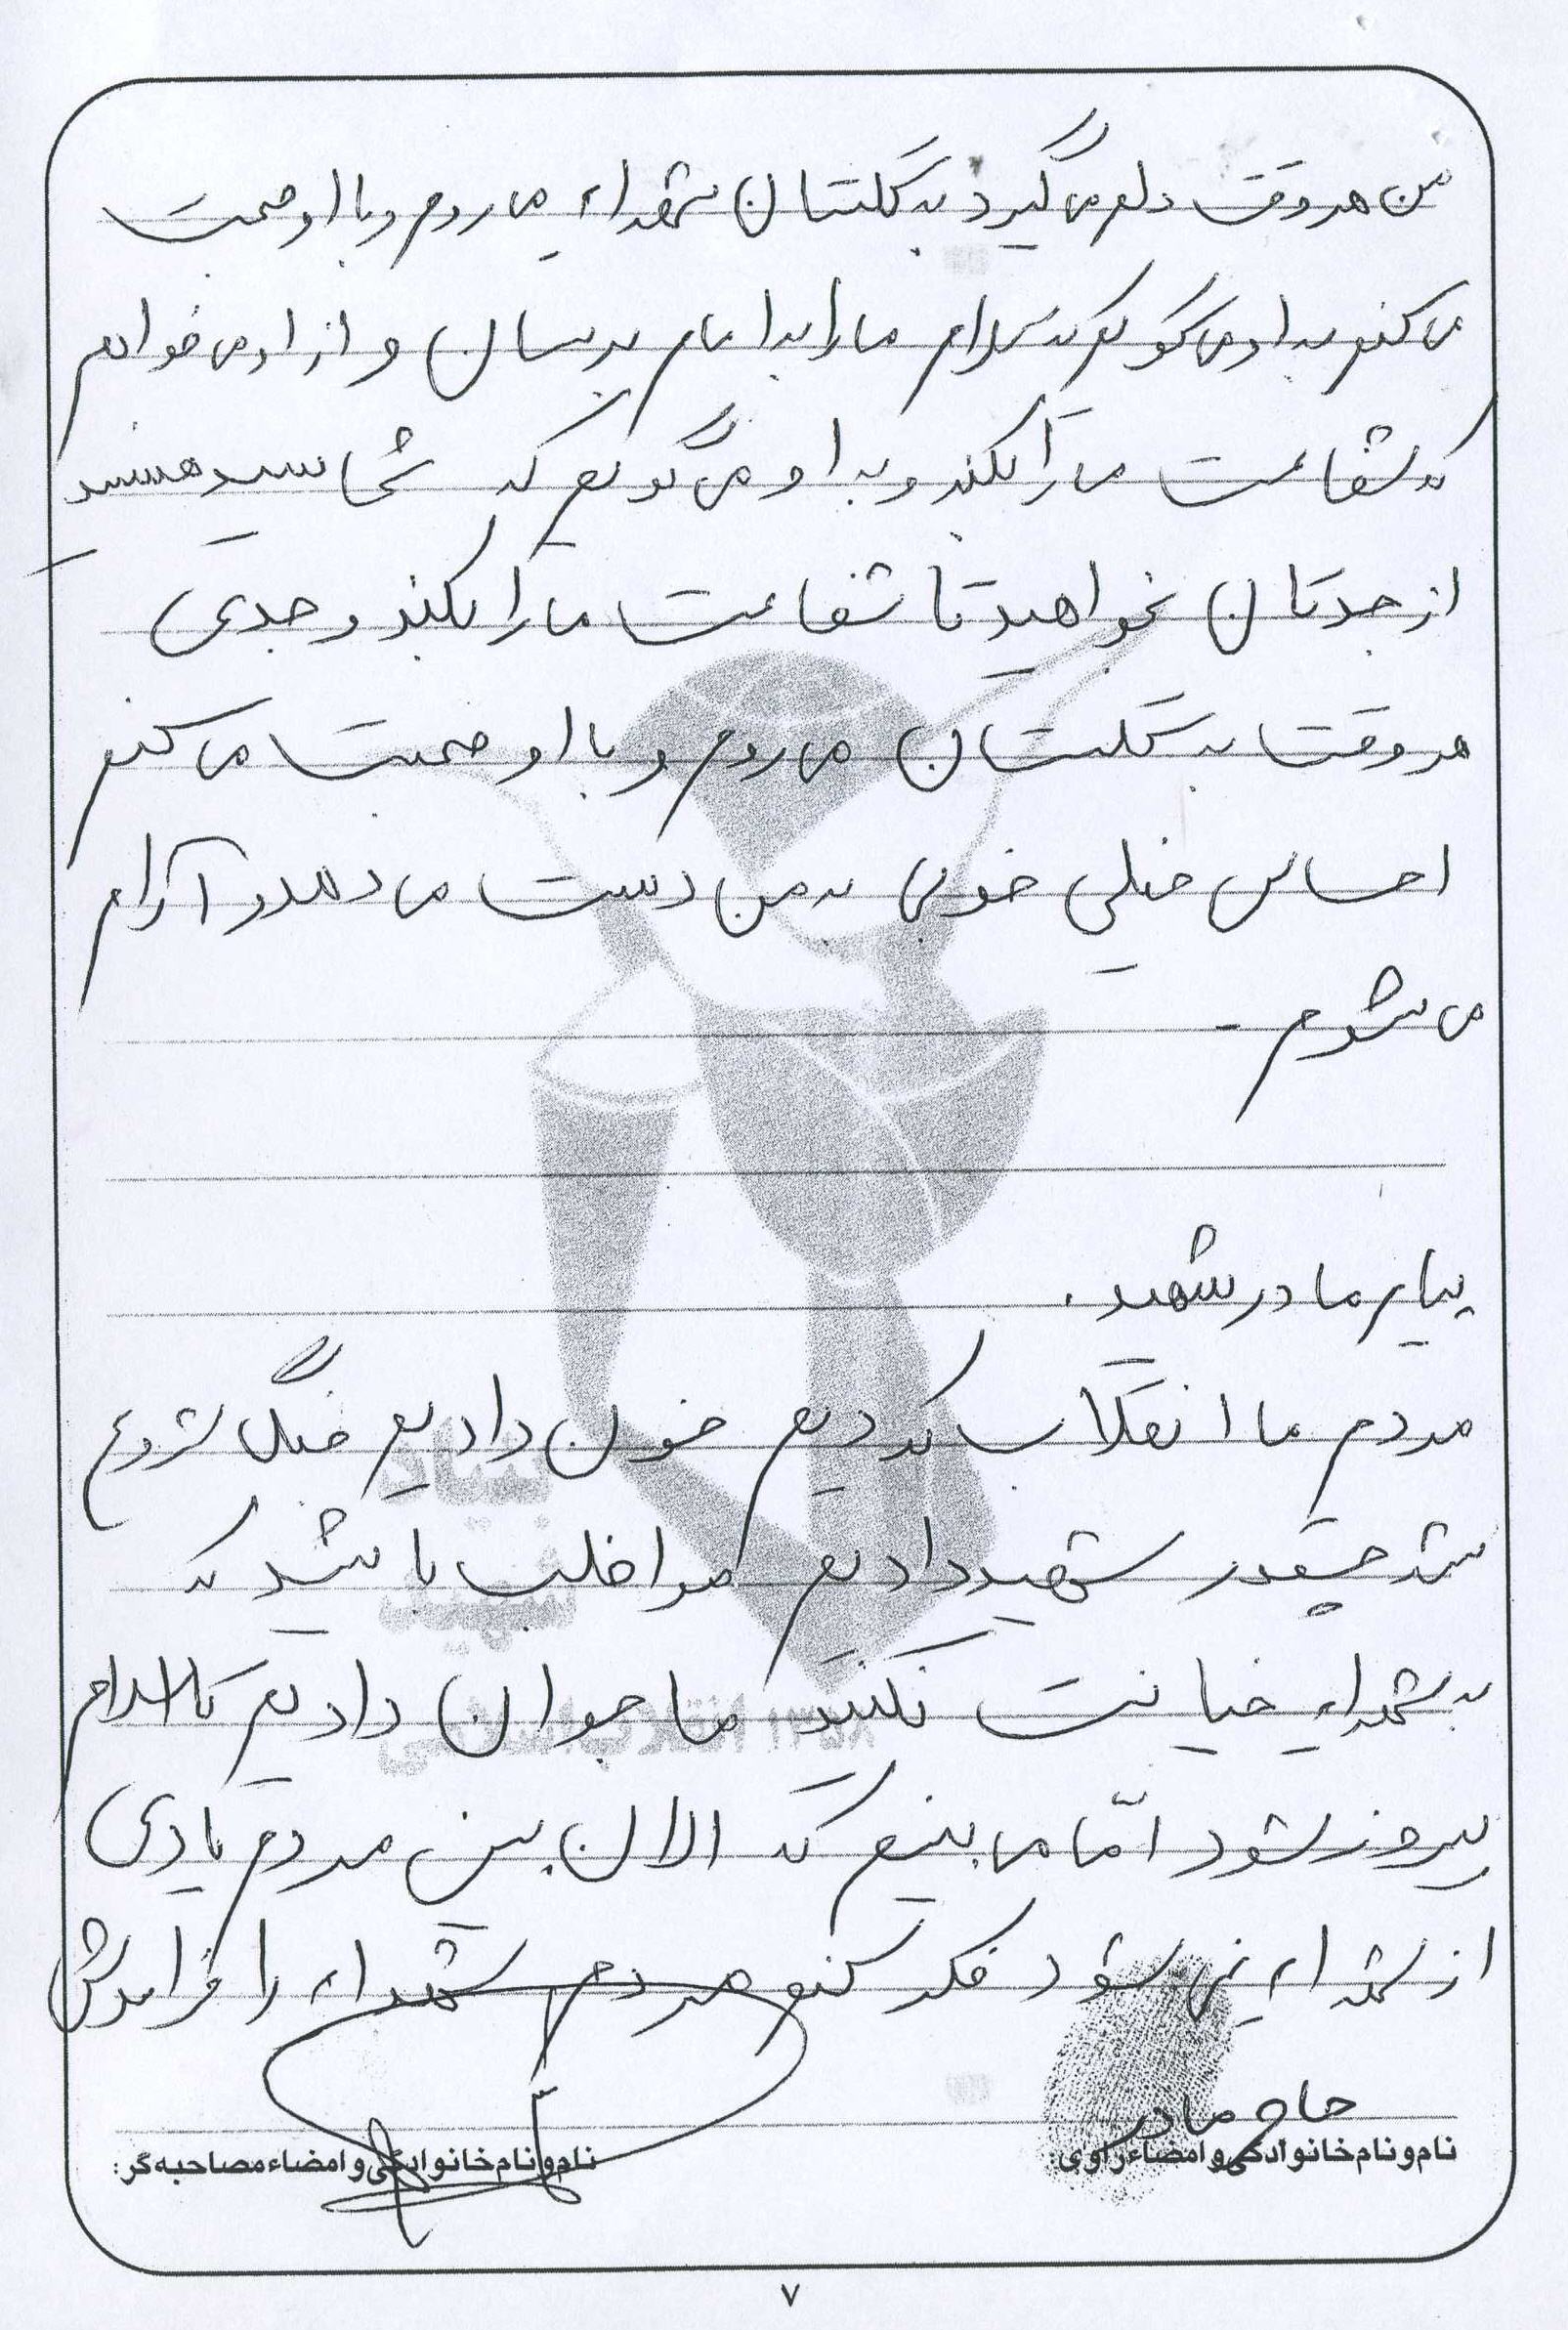 من هر وقت دلم می گیرد به گلستان شهداء می روم و با او صحبت
می کنم به او می گویم که سلام ما را به امام برسان و از او می خواهم
که شفاعت ما را بکند و به او می گویم که شما سید هستید
از جدتان بخواهید تا شفاعت ما را بکند و جدی
هر وقت به گلستان می روم و با او صحبت می کنم
احساس خیلی خوبی به من دست می دهد و آرام
می شوم -
پیام مادر شهید.
مردم ما انقلاب کردیم خون دادیم جنگ شروع
شد چقدر شهید دادیم مواظب باشید که
به شهداء خیانت نکنید ما جوان دادیم تا اسلام
پیروز شود امّا می بینم که الان بین مردم یادی
از شهداء نمی شود فکر کنم مردم شهداء را فراموش
حاج مادر
نام و نام خانوادگی و امضاء راوی:
نام و نام خانوادگی و امضاء مصاحبه گر:
بنیاد
شهید
انقلاب اسلامی ۱۳۵۸
۷